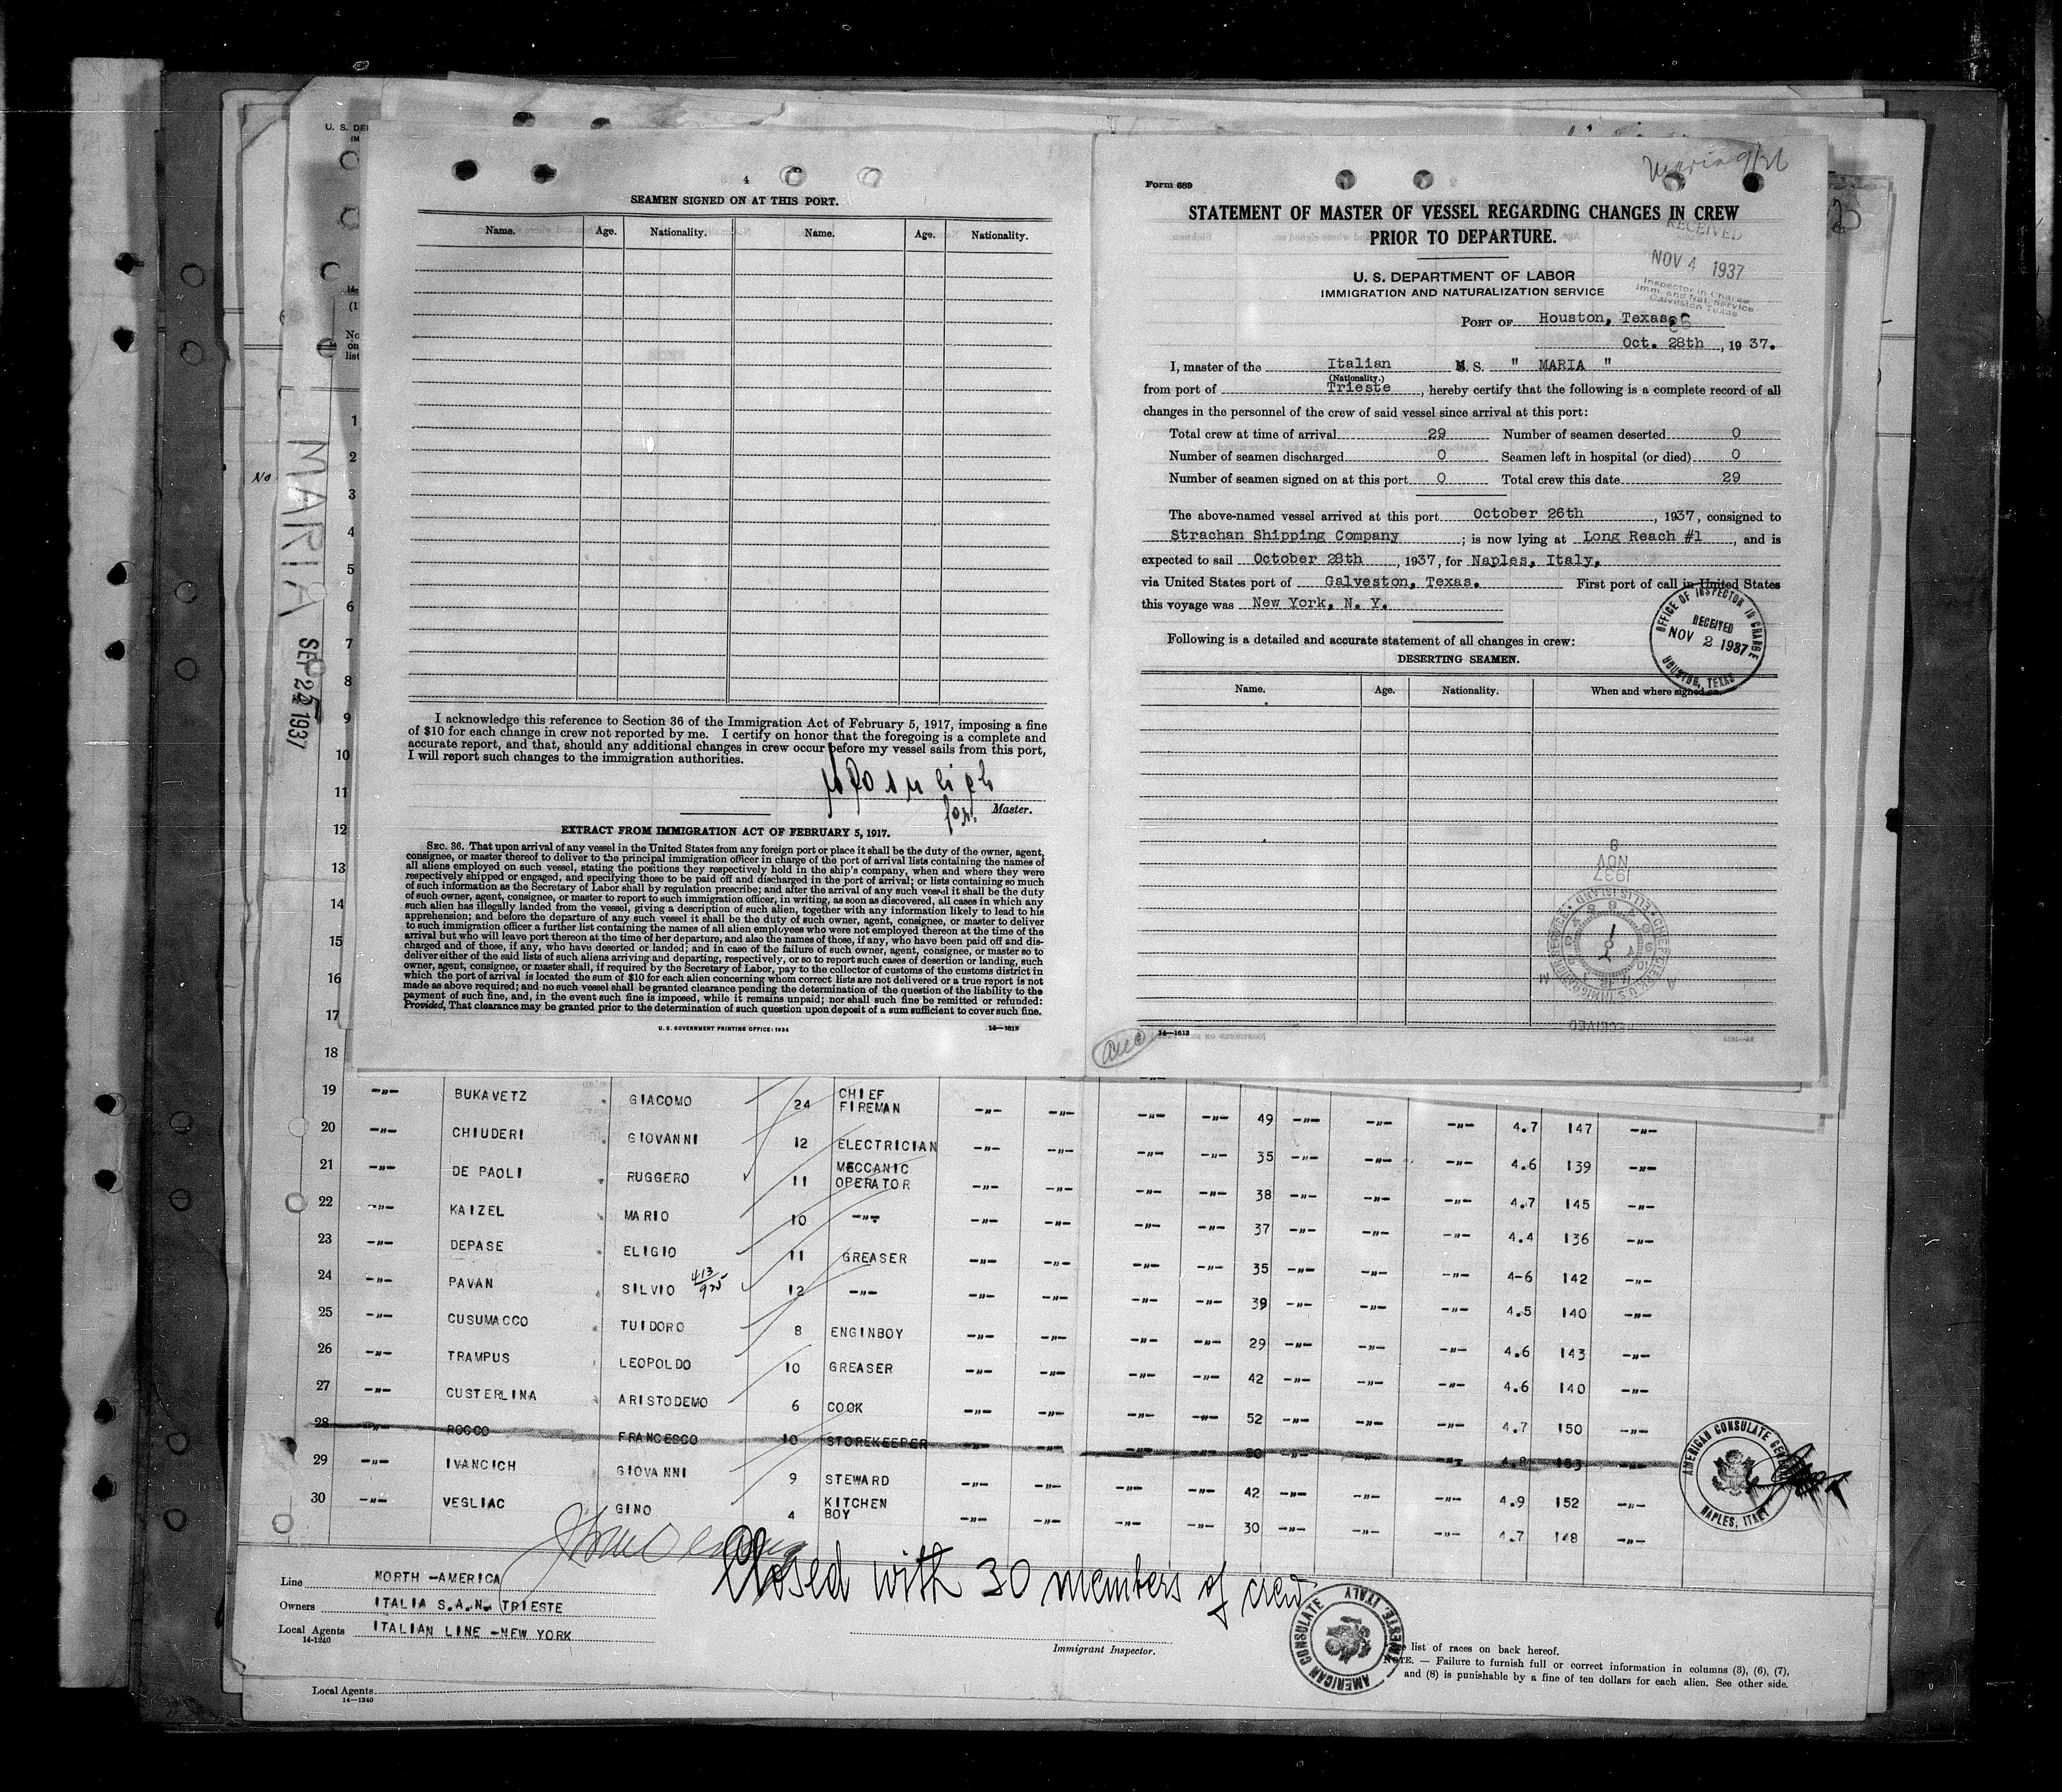 U. S. DE
IM
(1
No
on
list
No
MARIA
SEP 25 1937
1
2
3
4
5
6
7
8
9
10
11
12
13
14
15
16
17
18
4
SEAMEN SIGNED ON AT THIS PORT.
Name. Age. Nationality. Name. Age. Nationality.
I acknowledge this reference to Section 36 of the Immigration Act of February 5, 1917, imposing a fine
of $10 for each change in crew not reported by me. I certify on honor that the foregoing is a complete and
accurate report, and that, should any additional changes in crew occur before my vessel sails from this port,
I will report such changes to the immigration authorities.
for. Master.
EXTRACT FROM IMMIGRATION ACT OF FEBRUARY 5, 1917.
SEC. 36. That upon arrival of any vessel in the United States from any foreign port or place it shall be the duty of the owner, agent,
consignee, or master thereof to deliver to the principal immigration officer in charge of the port of arrival lists containing the names of
all aliens employed on such vessel, stating the positions they respectively hold in the ship's company, when and where they were
respectively shipped or engaged, and specifying those to be paid off and discharged in the port of arrival; or lists containing so much
of such information as the Secretary of Labor shall by regulation prescribe; and after the arrival of any such vessel it shall be the duty
of such owner, agent, consignee, or master to report to such immigration officer, in writing, as soon as discovered, all cases in which any
such alien has illegally landed from the vessel, giving a description of such alien, together with any information likely to lead to his
apprehension; and before the departure of any such vessel it shall be the duty of such owner, agent, consignee, or master to deliver
to such immigration officer a further list containing the names of all alien employees who were not employed thereon at the time of the
arrival but who will leave port thereon at the time of her departure, and also the names of those, if any, who have been paid off and dis-
charged and of those, if any, who have deserted or landed; and in case of the failure of such owner, agent, consignee, or master so to
deliver either of the said lists of such aliens arriving and departing, respectively, or so to report such cases of desertion or landing, such
owner, agent, consignee, or master shall, if required by the Secretary of Labor, pay to the collector of customs of the customs district in
which the port of arrival is located the sum of $10 for each alien concerning whom correct lists are not delivered or a true report is not
made as above required; and no such vessel shall be granted clearance pending the determination of the question of the liability to the
payment of such fine, and, in the event such fine is imposed, while it remains unpaid; nor shall such fine be remitted or refunded:
Provided, That clearance may be granted prior to the determination of such question upon deposit of a sum sufficient to cover such fine.
U. S. GOVERNMENT PRINTING OFFICE: 1934 14—1613
Maria 9/26
Form 689
STATEMENT OF MASTER OF VESSEL REGARDING CHANGES IN CREW
PRIOR TO DEPARTURE.
RECEIVED
NOV 4 1937
Inspector in Charge
Imm. and Nat. Service
Galveston Texas
U. S. DEPARTMENT OF LABOR
IMMIGRATION AND NATURALIZATION SERVICE
PORT OF Houston, Texas
Oct. 28th, 1937.
I, master of the Italian M. S. " MARIA "
(Nationality.)
from port of Trieste, hereby certify that the following is a complete record of all
changes in the personnel of the crew of said vessel since arrival at this port:
Total crew at time of arrival 29 Number of seamen deserted 0
Number of seamen discharged 0 Seamen left in hospital (or died) 0
Number of seamen signed on at this port 0 Total crew this date 29
The above-named vessel arrived at this port October 26th, 1937, consigned to
Strachan Shipping Company; is now lying at Long Reach #1, and is
expected to sail October 28th, 1937, for Naples, Italy,
via United States port of Galveston, Texas. First port of call in United States
this voyage was New York, N. Y.
OFFICE OF INSPECTOR IN CHARGE
RECEIVED
NOV 2 1937
HOUSTON, TEXAS
Following is a detailed and accurate statement of all changes in crew:
DESERTING SEAMEN.
Name. Age. Nationality. When and where signed on.
1937
NOV
8
CHIEF CLERK U.S. IMMIGRATION SERVICE ELLIS ISLAND
RECEIVED
14—1613
19 -"- BUKAVETZ GIACOMO 24 CHIEF FIREMAN -"- -"- -"- -"- 49 -"- -"- -"- 4.7 147 -"-
20 -"- CHIUDERI GIOVANNI 12 ELECTRICIAN -"- -"- -"- -"- 35 -"- -"- -"- 4.6 139 -"-
21 -"- DE PAOLI RUGGERO 11 MECCANIC OPERATOR -"- -"- -"- -"- 38 -"- -"- -"- 4.7 145 -"-
22 -"- KAIZEL MARIO 10 -"- -"- -"- -"- -"- 37 -"- -"- -"- 4.4 136 -"-
23 -"- DEPASE ELIGIO 11 GREASER -"- -"- -"- -"- 35 -"- -"- -"- 4-6 142 -"-
24 -"- PAVAN SILVIO 413/925 12 -"- -"- -"- -"- -"- 39 -"- -"- -"- 4.5 140 -"-
25 -"- CUSUMACCO TUIDORO 8 ENGINBOY -"- -"- -"- -"- 29 -"- -"- -"- 4.6 143 -"-
26 -"- TRAMPUS LEOPOLDO 10 GREASER -"- -"- -"- -"- 42 -"- -"- -"- 4.6 140 -"-
27 -"- CUSTERLINA ARISTODEMO 6 COOK -"- -"- -"- -"- 52 -"- -"- -"- 4.7 150 -"-
28 -"- ROCCO FRANCESCO 10 STOREKEEPER -"- -"- -"- -"- 50 -"- -"- -"- 4.8 153 -"-
29 -"- IVANCICH GIOVANNI 9 STEWARD -"- -"- -"- -"- 42 -"- -"- -"- 4.9 152 -"-
30 -"- VEGLIAC GINO 4 KITCHEN BOY -"- -"- -"- -"- 30 -"- -"- -"- 4.7 148 -"-
AMERICAN CONSULATE GENERAL
NAPLES, ITALY
Closed with 30 members of crew
Line NORTH -AMERICA
Owners ITALIA S.A.N. TRIESTE
Local Agents ITALIAN LINE -NEW YORK
14-1240
Immigrant Inspector.
AMERICAN CONSULATE
TRIESTE, ITALY
list of races on back hereof.
NOTE. — Failure to furnish full or correct information in columns (3), (6), (7),
and (8) is punishable by a fine of ten dollars for each alien. See other side.
Local Agents
14—1240